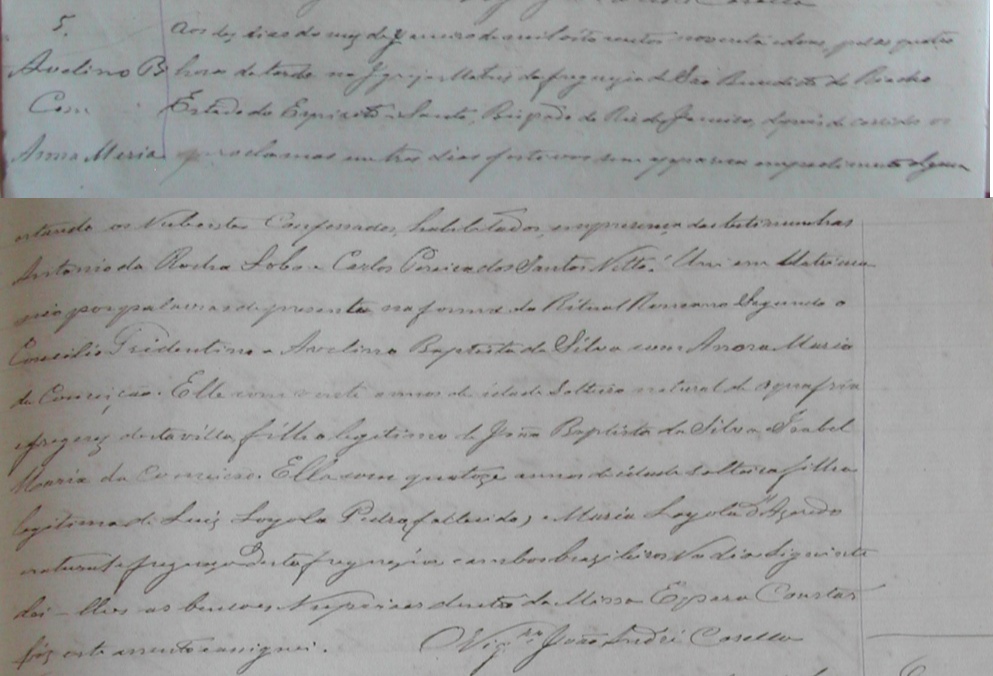 5.
Avelino B
Com
Anna Maria
Aos dez dias do mez de Janeiro de mil oito centos noventa e dous, pelas quatro
hora da tarde na Igreja Matriz da freguezia de São Benedicto do Riacho
Estado do Espirito Santo, Bispado do Rio de Janeiro, depois de corridos os
proclamas em tres dias festivos sem apparecer impedimento algum
estando os Nubentes Confessados, habilitados, em presença das testimunhas
Antonio da Rocha Lobo e Carlos Pereira dos Santos Netto. Uni em Matrimo
nio por palavras de presente, na forma do Ritual Romano Segundo o
Concilio Tridentino a Avelino Baptista da Silva com Anna Maria
da Conceição. Elle com vinte annos de idade Solteiro natural de
e freguez desta villa, filho legitimo de João Baptista da Silva e Izabel
Maria da Conceicão. Ella com quatoze annos de idade solteira filha
legitima de Luiz Loyola Pedra, fallecido, e Maria Loyola d'Azeredo
natural e fregueza desta freguezia e ambos brazileiros No dia Siguinte
dei-lhes as bencoes Nupciaes dentro da Missa E para Constar
fiz este assento e assignei.
Vigrº João André Casella